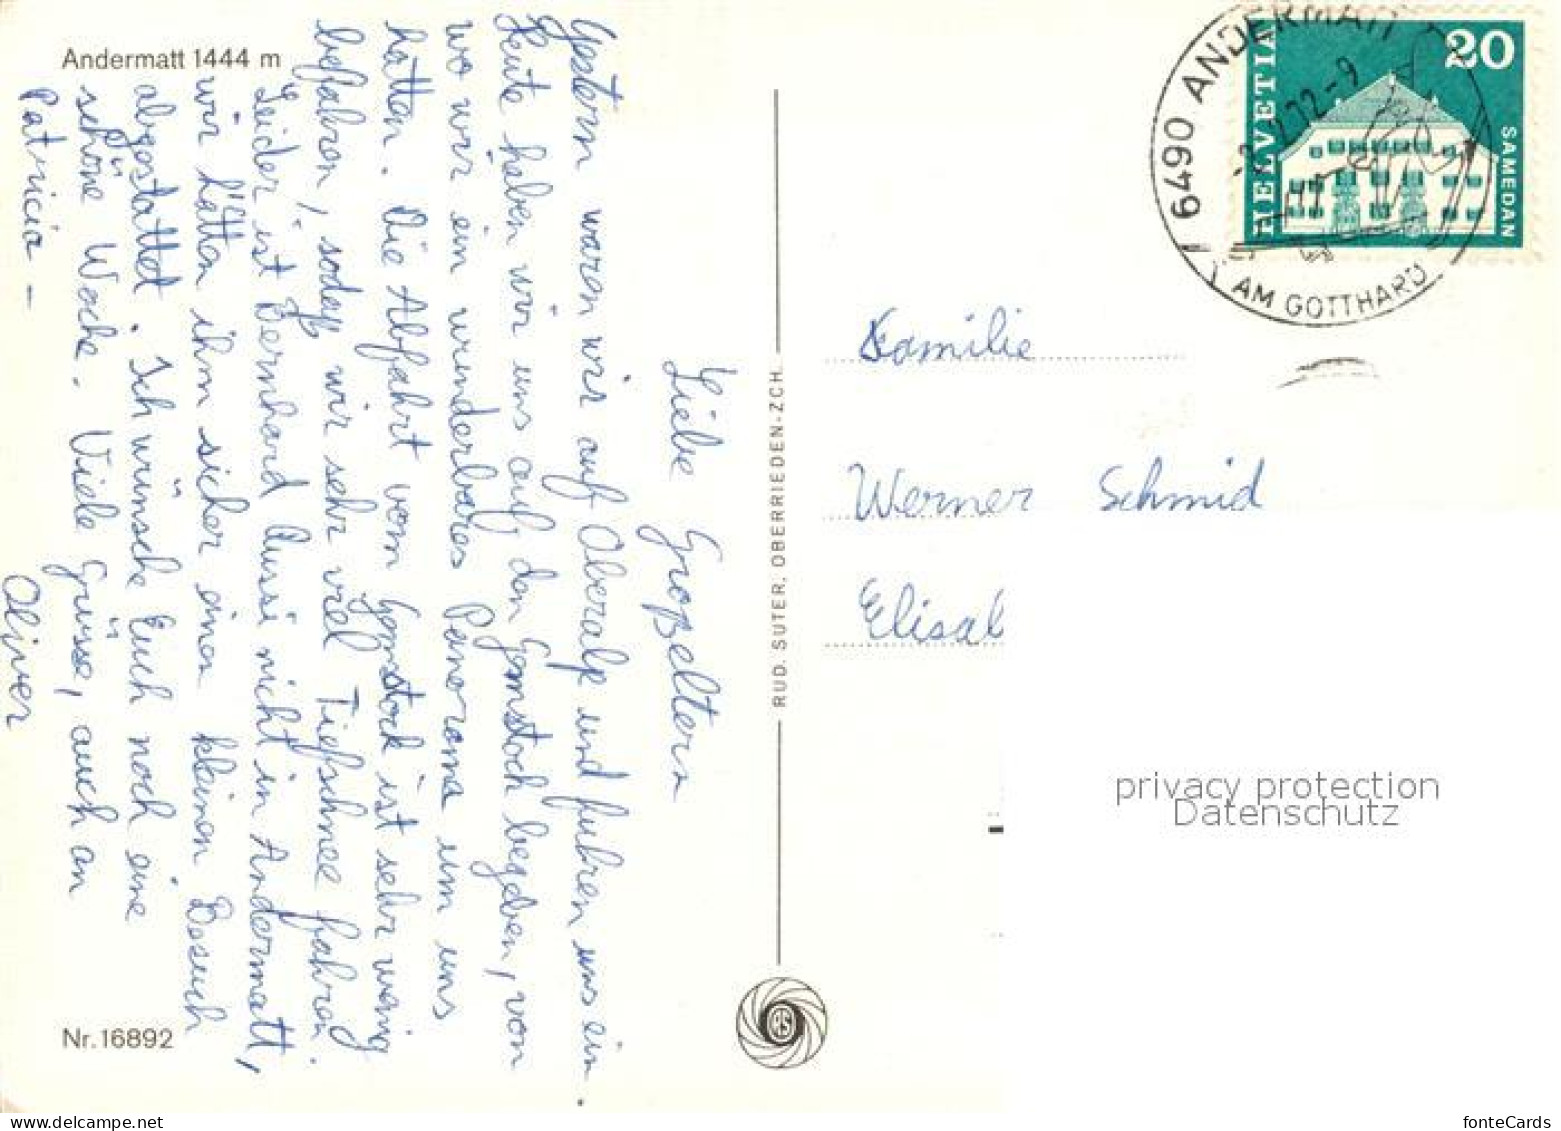 Andermatt 1444 m
Liebe Großeltern
Gestern waren wir auf Oberalp und fuhren uns ein.
Heute haben wir uns auf den Gemstock begeben, von
wo wir ein wunderbares Panorama um uns
hatten. Die Abfahrt vom Gemstock ist sehr wenig
befahren, sodaß wir sehr viel Tiefschnee fahren.
Leider ist Bernhard Russi nicht in Andermatt,
wir hätten ihm sicher einen kleinen Besuch
abgestattet. Ich wünsche Euch noch eine
schöne Woche. Viele Grüsse, auch an
Patricia –
Oliver
Nr. 16892
RUD. SUTER, OBERRIEDEN-ZCH.
HELVETIA
20
SAMEDAN
6490 ANDERMATT
2.72-9
AM GOTTHARD
Familie
Werner Schmid
Elisab
privacy protection
Datenschutz
fonteCards
www.delcampe.net